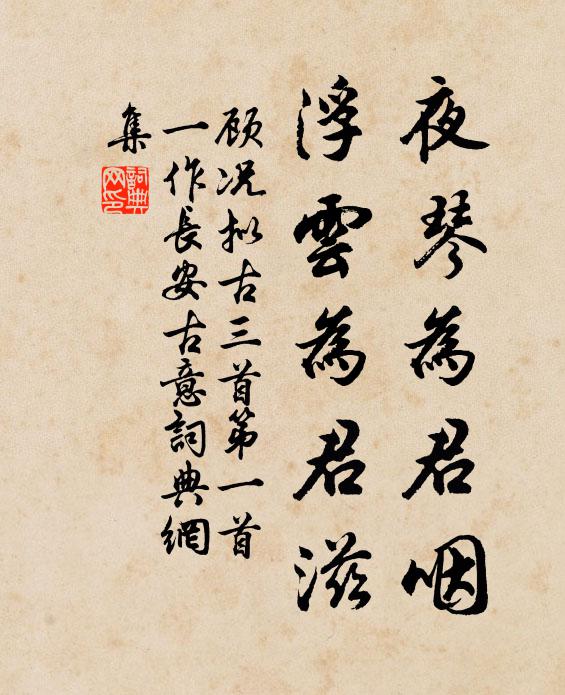 夜琴為君咽
浮雲為君滋
顾况拟古三首第一首
一作長安古意詞典網
集
詞典
网印